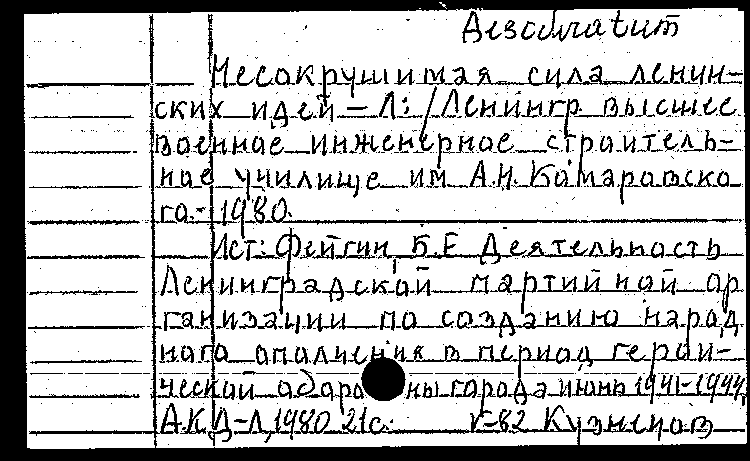 Несокрушимая сила ленин-
ских идей – Л: /Ленингр высшее
военное инженерное строитель-
ное училище им А.Н. Комаровско
го.- 1980.
Ист: Фейгин, Б.Е Деятельность
Ленинградской партийной ор
ганизации по созданию народ
ного ополчения в период герои-
ческой обороны города июнь 1941-1944,
А.К.Д-Л, 1980 21с. V-82 Кузнецов